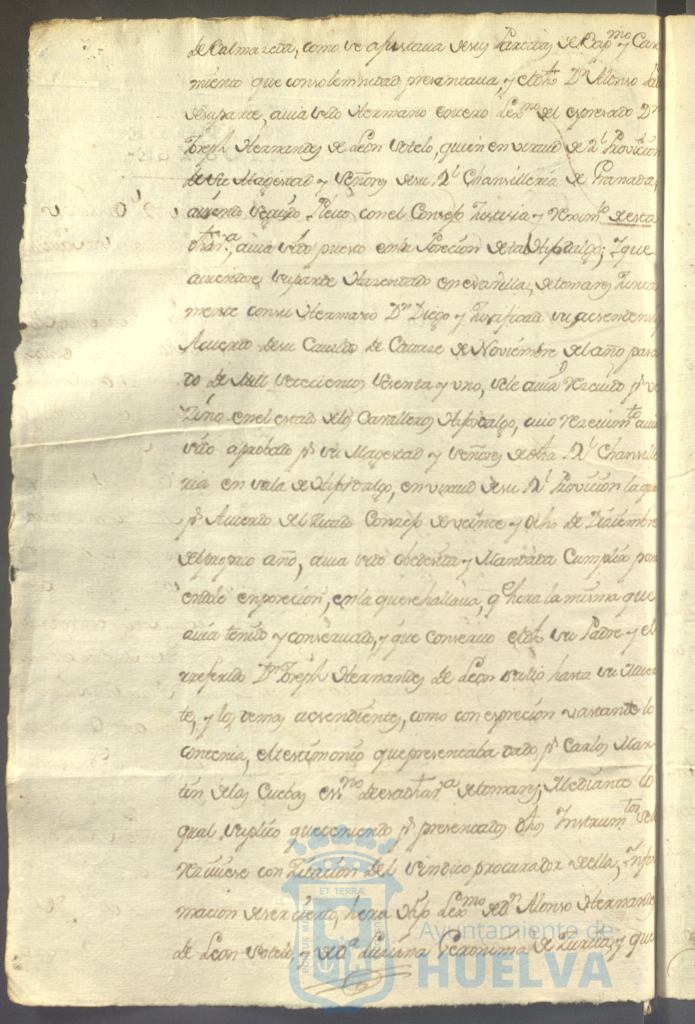 de Calmaestra, como se ajustava de sus Partidas de Bapmo y Casa
miento que con solemnidad presentava, y el dho Dn Alonso
su parte, avia sido Hermano entero Lexmo del expresado Dn
Joseph Hernandes de Leon Sotelo, quien en virtud de Rl Provicion
de Su Magestad y Señores de su Rl Chansilleria de Granada,
aviendo seguido Pleito con el Consejo Justisia y Rexim.to de esta
dha va, avia sido puesto en la Posecion de tal Hijodalgo; Y que
aviendose su parte Havesindado en esa villa, de tomares Junta
mente con su Hermano Dn Diego y Justificado su asendensia
Acuerdo de su Cavildo de Catorse de Noviembre del año pasa
do de Mill setecientos sesenta y uno, se le avia resevido pr Ve
zino en el estado de los Cavalleros Hijosdalgo, cuio resevim.to avia
sido aprobado pr su Magestad y Señores de dha Rl Chansille
ria en sala de Hijosdalgo, en virtud de su Rl Provicion la que
pr Acuerdo del Citado Consejo de veinte y ocho de Diziembre
del propio año, avia sido obedesida y Mandada Cumplir pon
endole en posecion, en la que se hallava, qe hera la misma que
avia tenido y conservado, y que conservo el dho su Padre y el
rreferido Dn Joseph Hernandes de Leon Sotelo hasta su Muer
te, y los demas asendientes, como con esprecion vastante lo
contenia, el testimonio que presentaba dado pr Carlos Mar
tin de las Cuebas esno de esa dha va de tomares; Mediante lo
qual suplico que teniendo pr presentados dhos Instrum.tos se le
resiviese con Zitacion del Sindico procurador de ella, Infor
macion de ser cierto, hera Hijo Lexmo de Dn Alonso Hernandes
de Leon Sotelo, y de Da Luciana Geronima de Zurita, y que
ET TERRÆ
PORTUS MARIS
Ayuntamiento de
HUELVA